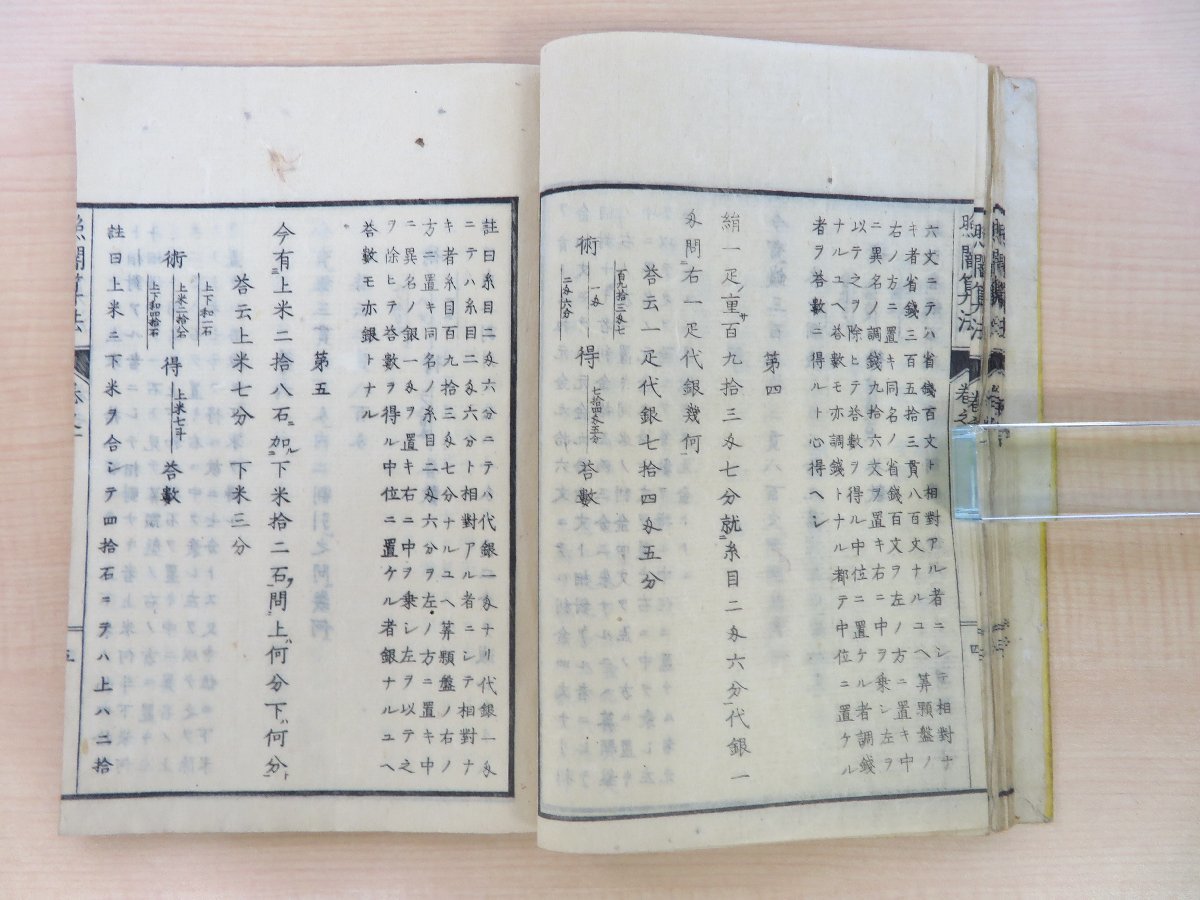 六文ニテハ省錢百文ト相對アル者ニシテ相對ナ
キ者省錢三百五拾三貫八百文ナルユヘ筭顆盤ノ
右ノ方ニ置キ同名ノ省錢百文ヲ左ノ方ニ置キ中
ニ異名ノ調錢九拾六文ヲ置キ右ニ中ヲ乗シ左ヲ
以テ之ヲ除ヒテ答數ヲ得ル中位ニ置ケル者調錢
ナルユヘ答數モ亦調錢トナル都テ中位ニ置ケル
者ヲ答數ニ得ルト心得ヘシ
第四
絹一疋重サ百九拾三匁七分就糸目二匁六分代銀一
匁問右一疋代銀幾何
答云一疋代銀七拾四匁五分
術 百九拾三匁七 一匁 二匁六分 得 七拾四匁五分 答數
照闇算法 卷之 四
註曰糸目二匁六分ニテハ代銀一匁ナリ代銀一匁
ニテハ糸目二匁六分ト相對アル者ニシテ相對ナ
キ者糸目百九拾三匁七分ナルユヘ筭顆盤ノ右ノ
方ニ置キ同名ノ糸目二匁六分ヲ左ノ方ニ置キ中
ニ異名ノ銀一匁ヲ置キ右ニ中ヲ乗シ左ヲ以テ之
ヲ除ヒテ答數ヲ得ル中位ニ置ケル者銀ナルユヘ
答數モ亦銀トナル
第五
今有上米二拾八石加下米拾二石問上何分下何分
答云上米七分 下米三分
術 上下和一石 上米二拾八石 上下和四拾石 得 上米七斗 答數
註曰上米ニ下米ヲ合シテ四拾石ニテハ上ハ二拾
照闇算法 五